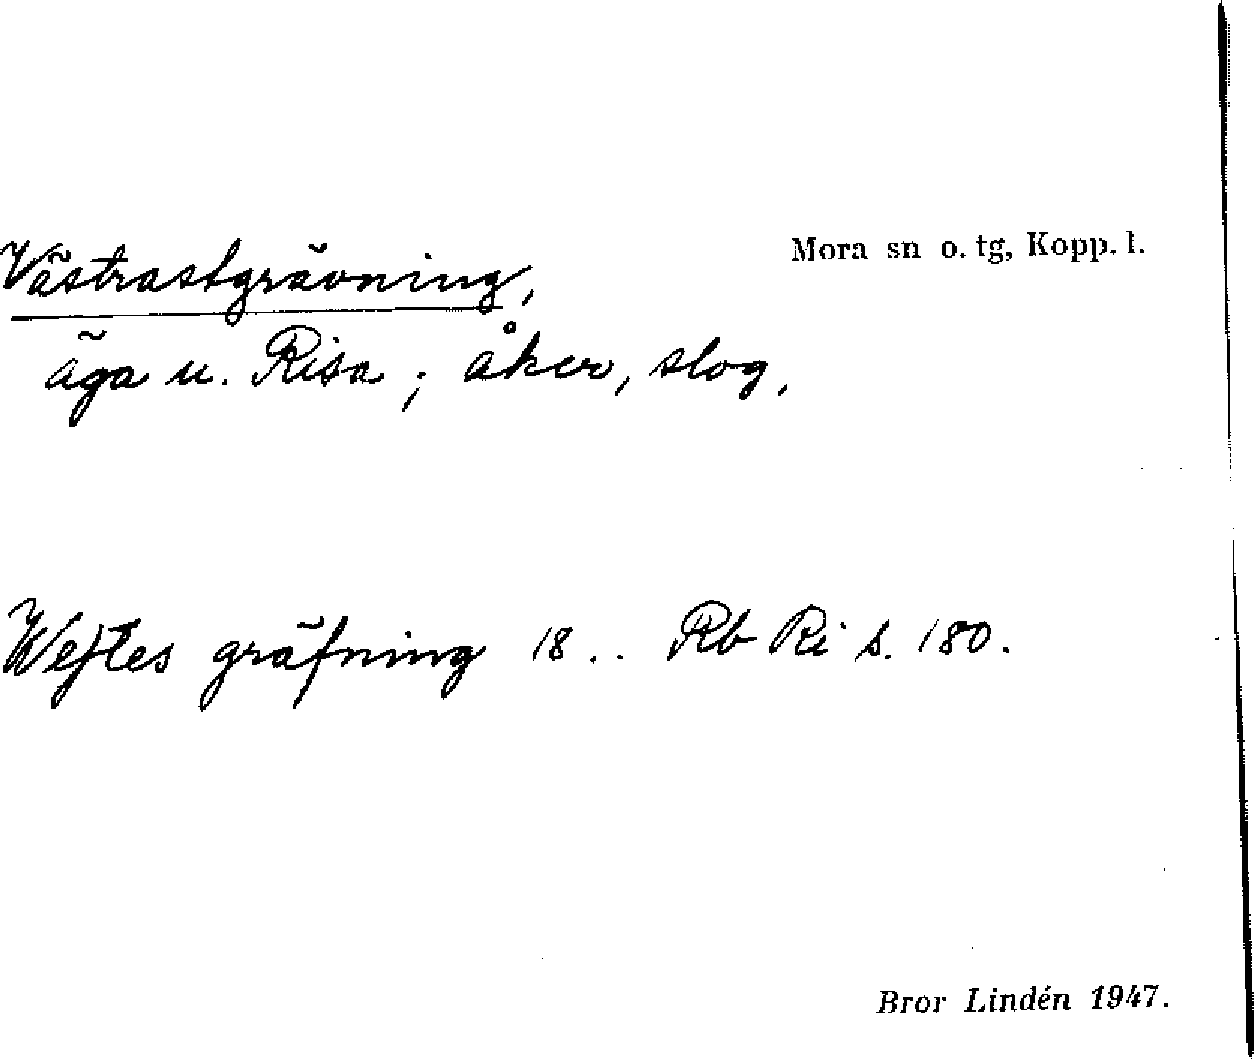 Västrastgrävning,
Mora sn o. tg, Kopp. l.
äga u. Risa; åker, slog.
Wejtes gräfning 18.. Rb Ri s. 180.
Bror Lindén 1947.